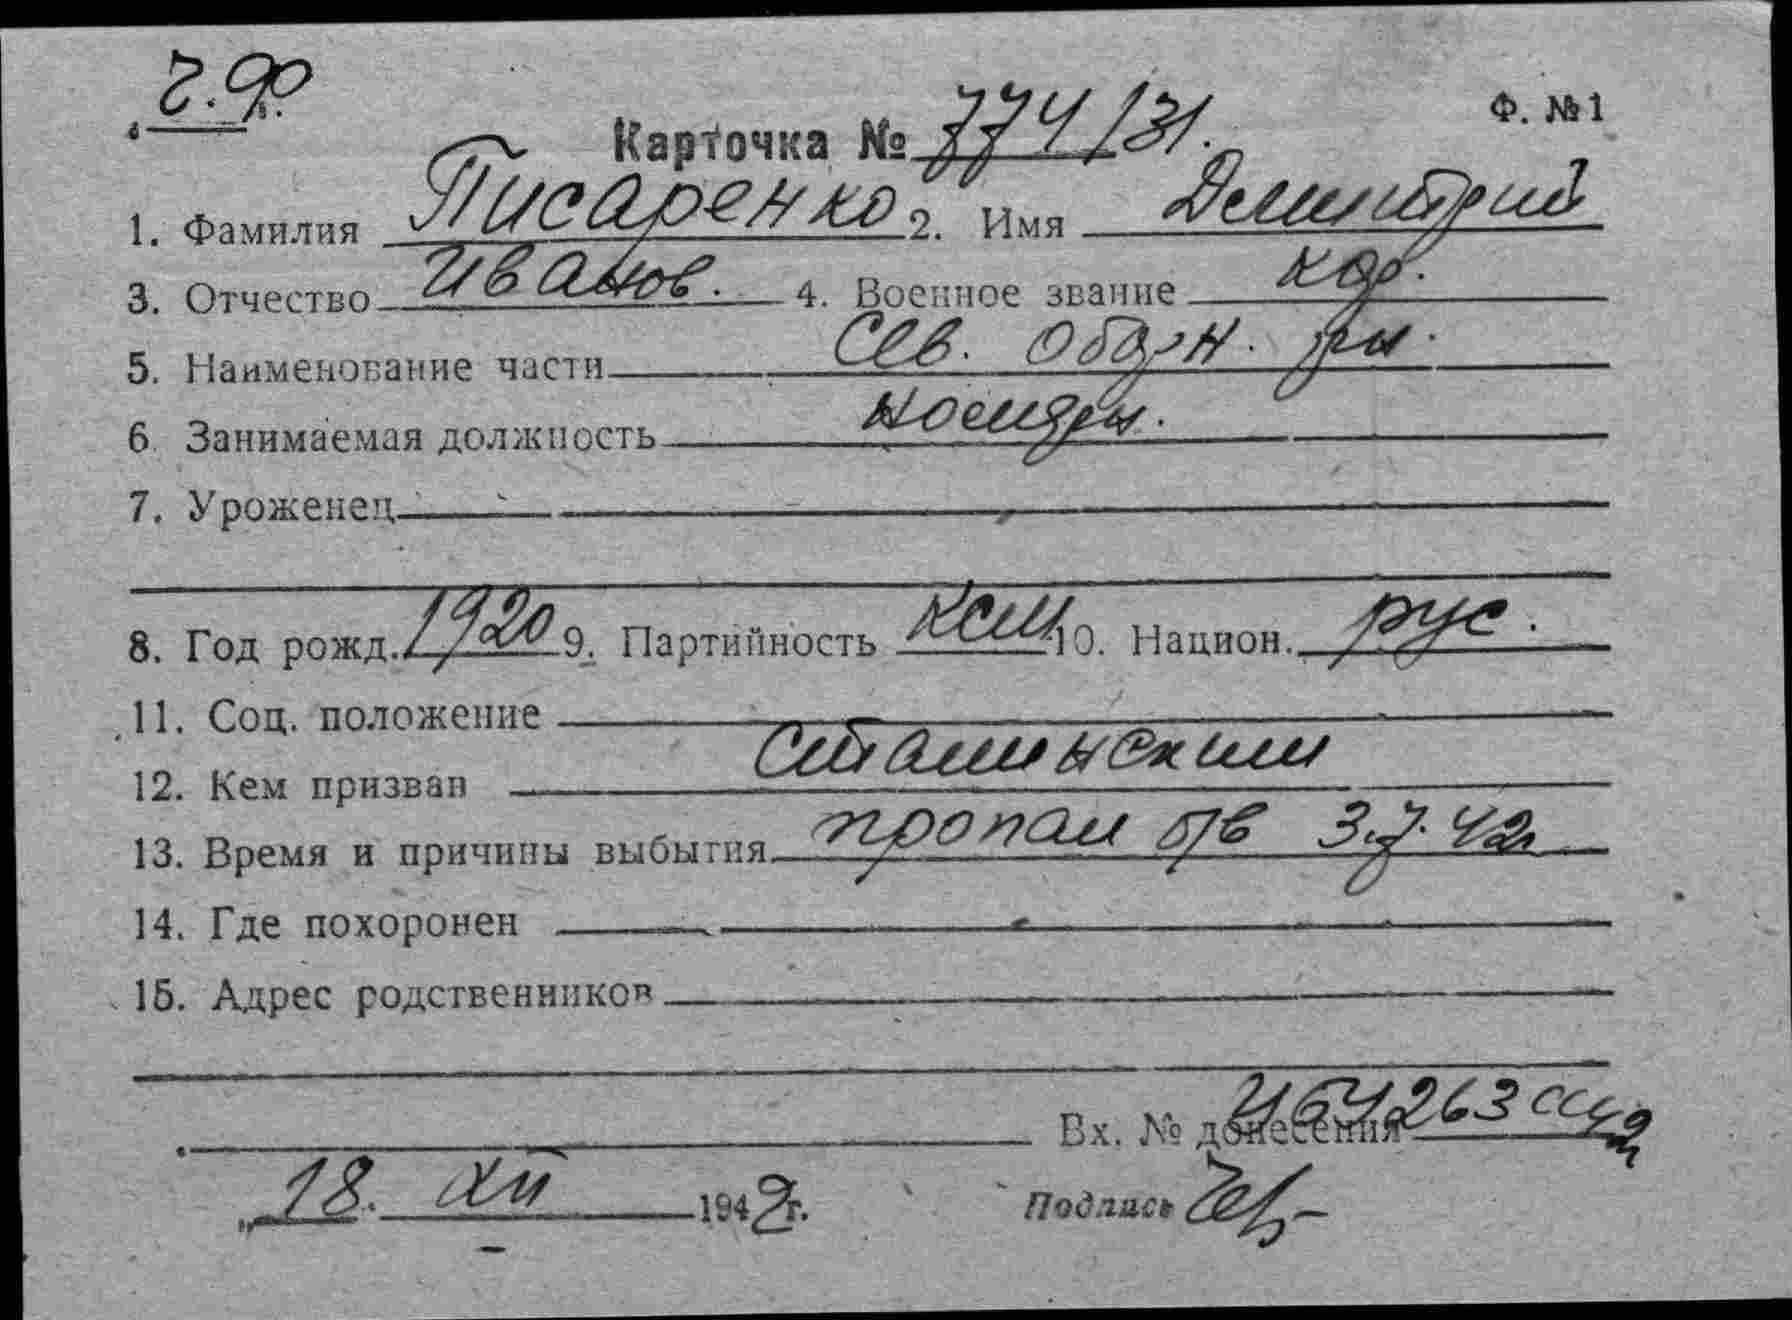 Ч.Ф.
Ф. №1
Карточка № 774/31.
1. Фамилия Писаренко 2. Имя Демитрий
3. Отчество Иванов. 4. Военное звание кр.
5. Наименование части Сев. оборн. рн.
6. Занимаемая должность
7. Уроженец
8. Год рожд. 1920 9. Партийность ксм 10. Национ. рус.
11. Соц. положение
12. Кем призван Сталинским
13. Время и причины выбытия пропал б/в 3.7.42г
14. Где похоронен
15. Адрес родственников
Вх. № донесения
18. XII 1942г. Подпись